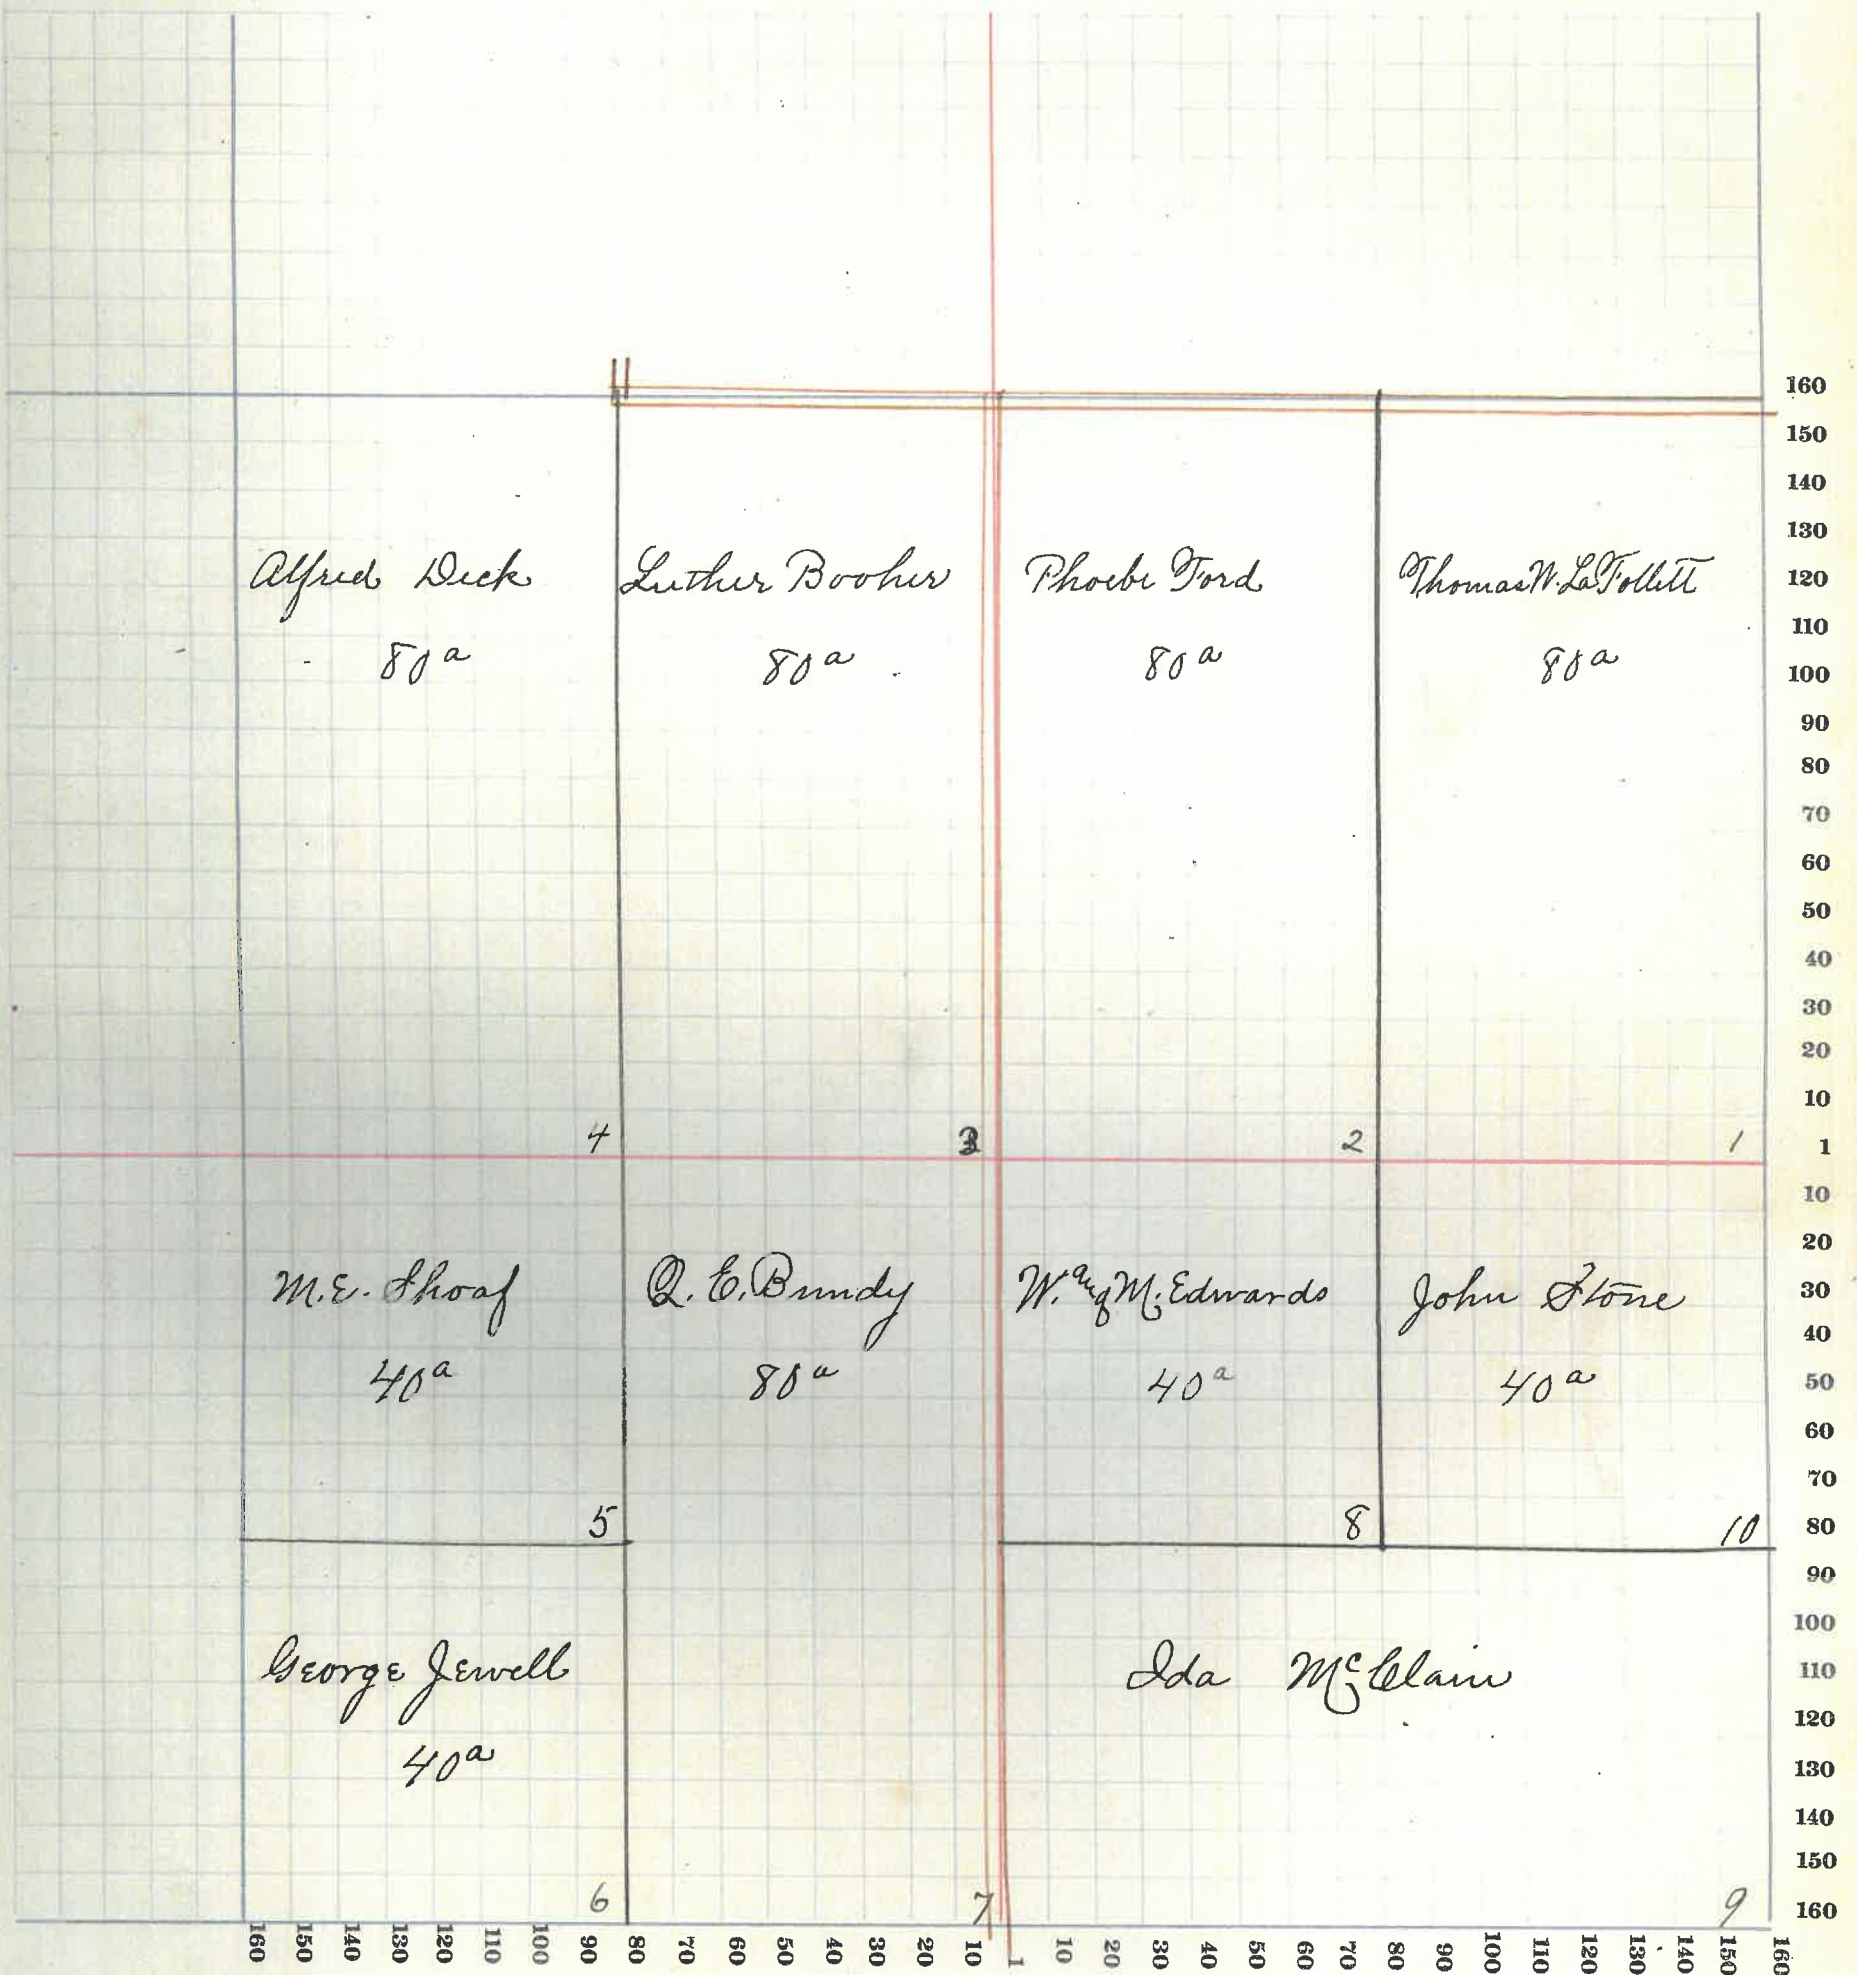 Alfred Dick
80 a
Luther Booher
80 a
Phoebe Ford
80 a
Thomas W. La Follett
80 a
4
3
2
1
M.E. Shoaf
40 a
Q. E. Bundy
80 a
W. M. Edwards
40 a
John Stone
40 a
5
8
10
George Jewell
40 a
Ida McClain
6
7
9
160
150
140
130
120
110
100
90
80
70
60
50
40
30
20
10
1
10
20
30
40
50
60
70
80
90
100
110
120
130
140
150
160
160 150 140 130 120 110 100 90 80 70 60 50 40 30 20 10 1 10 20 30 40 50 60 70 80 90 100 110 120 130 140 150 160